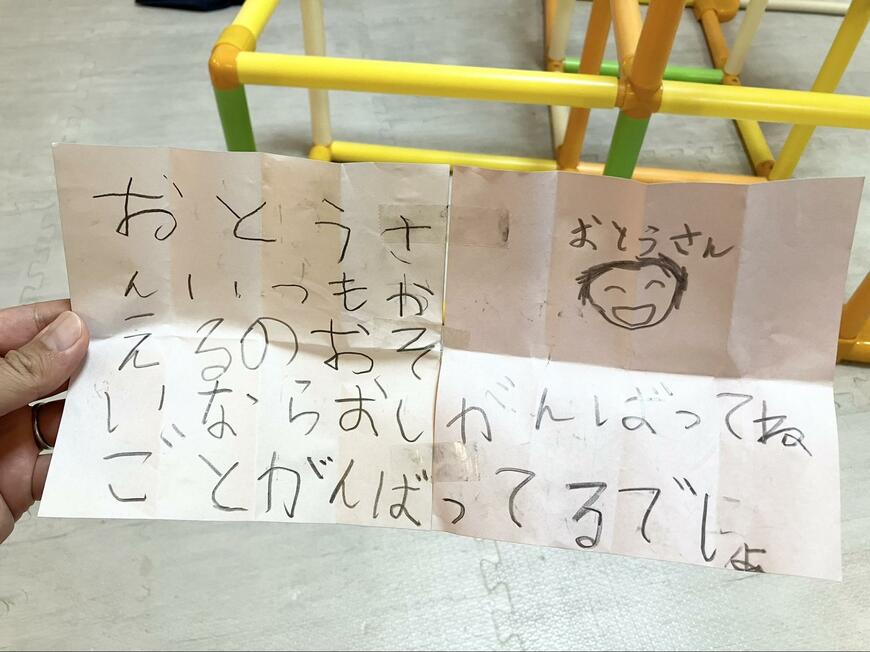 おとうさ
んいつもか
えるのおそ
いならおし
ごとがんばってるでしょ
おとうさん
がんばってね